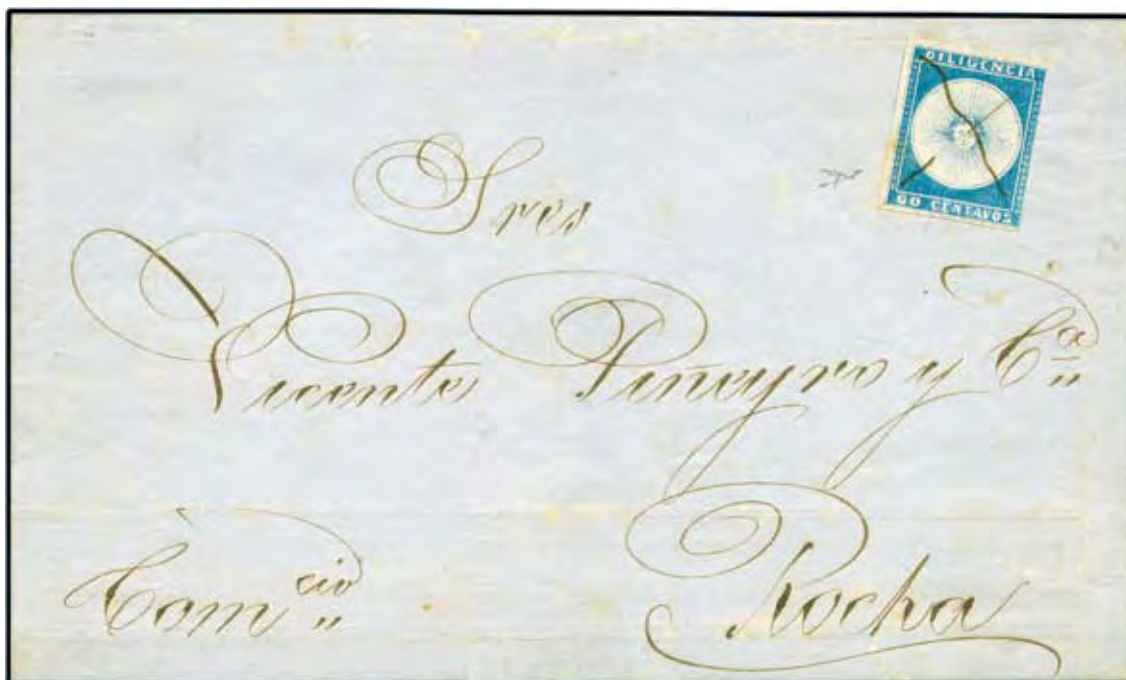 DILIGENCIA
60 CENTAVOS
Sres
Vicente Piñeyro y Cª
Comcio
Rocha